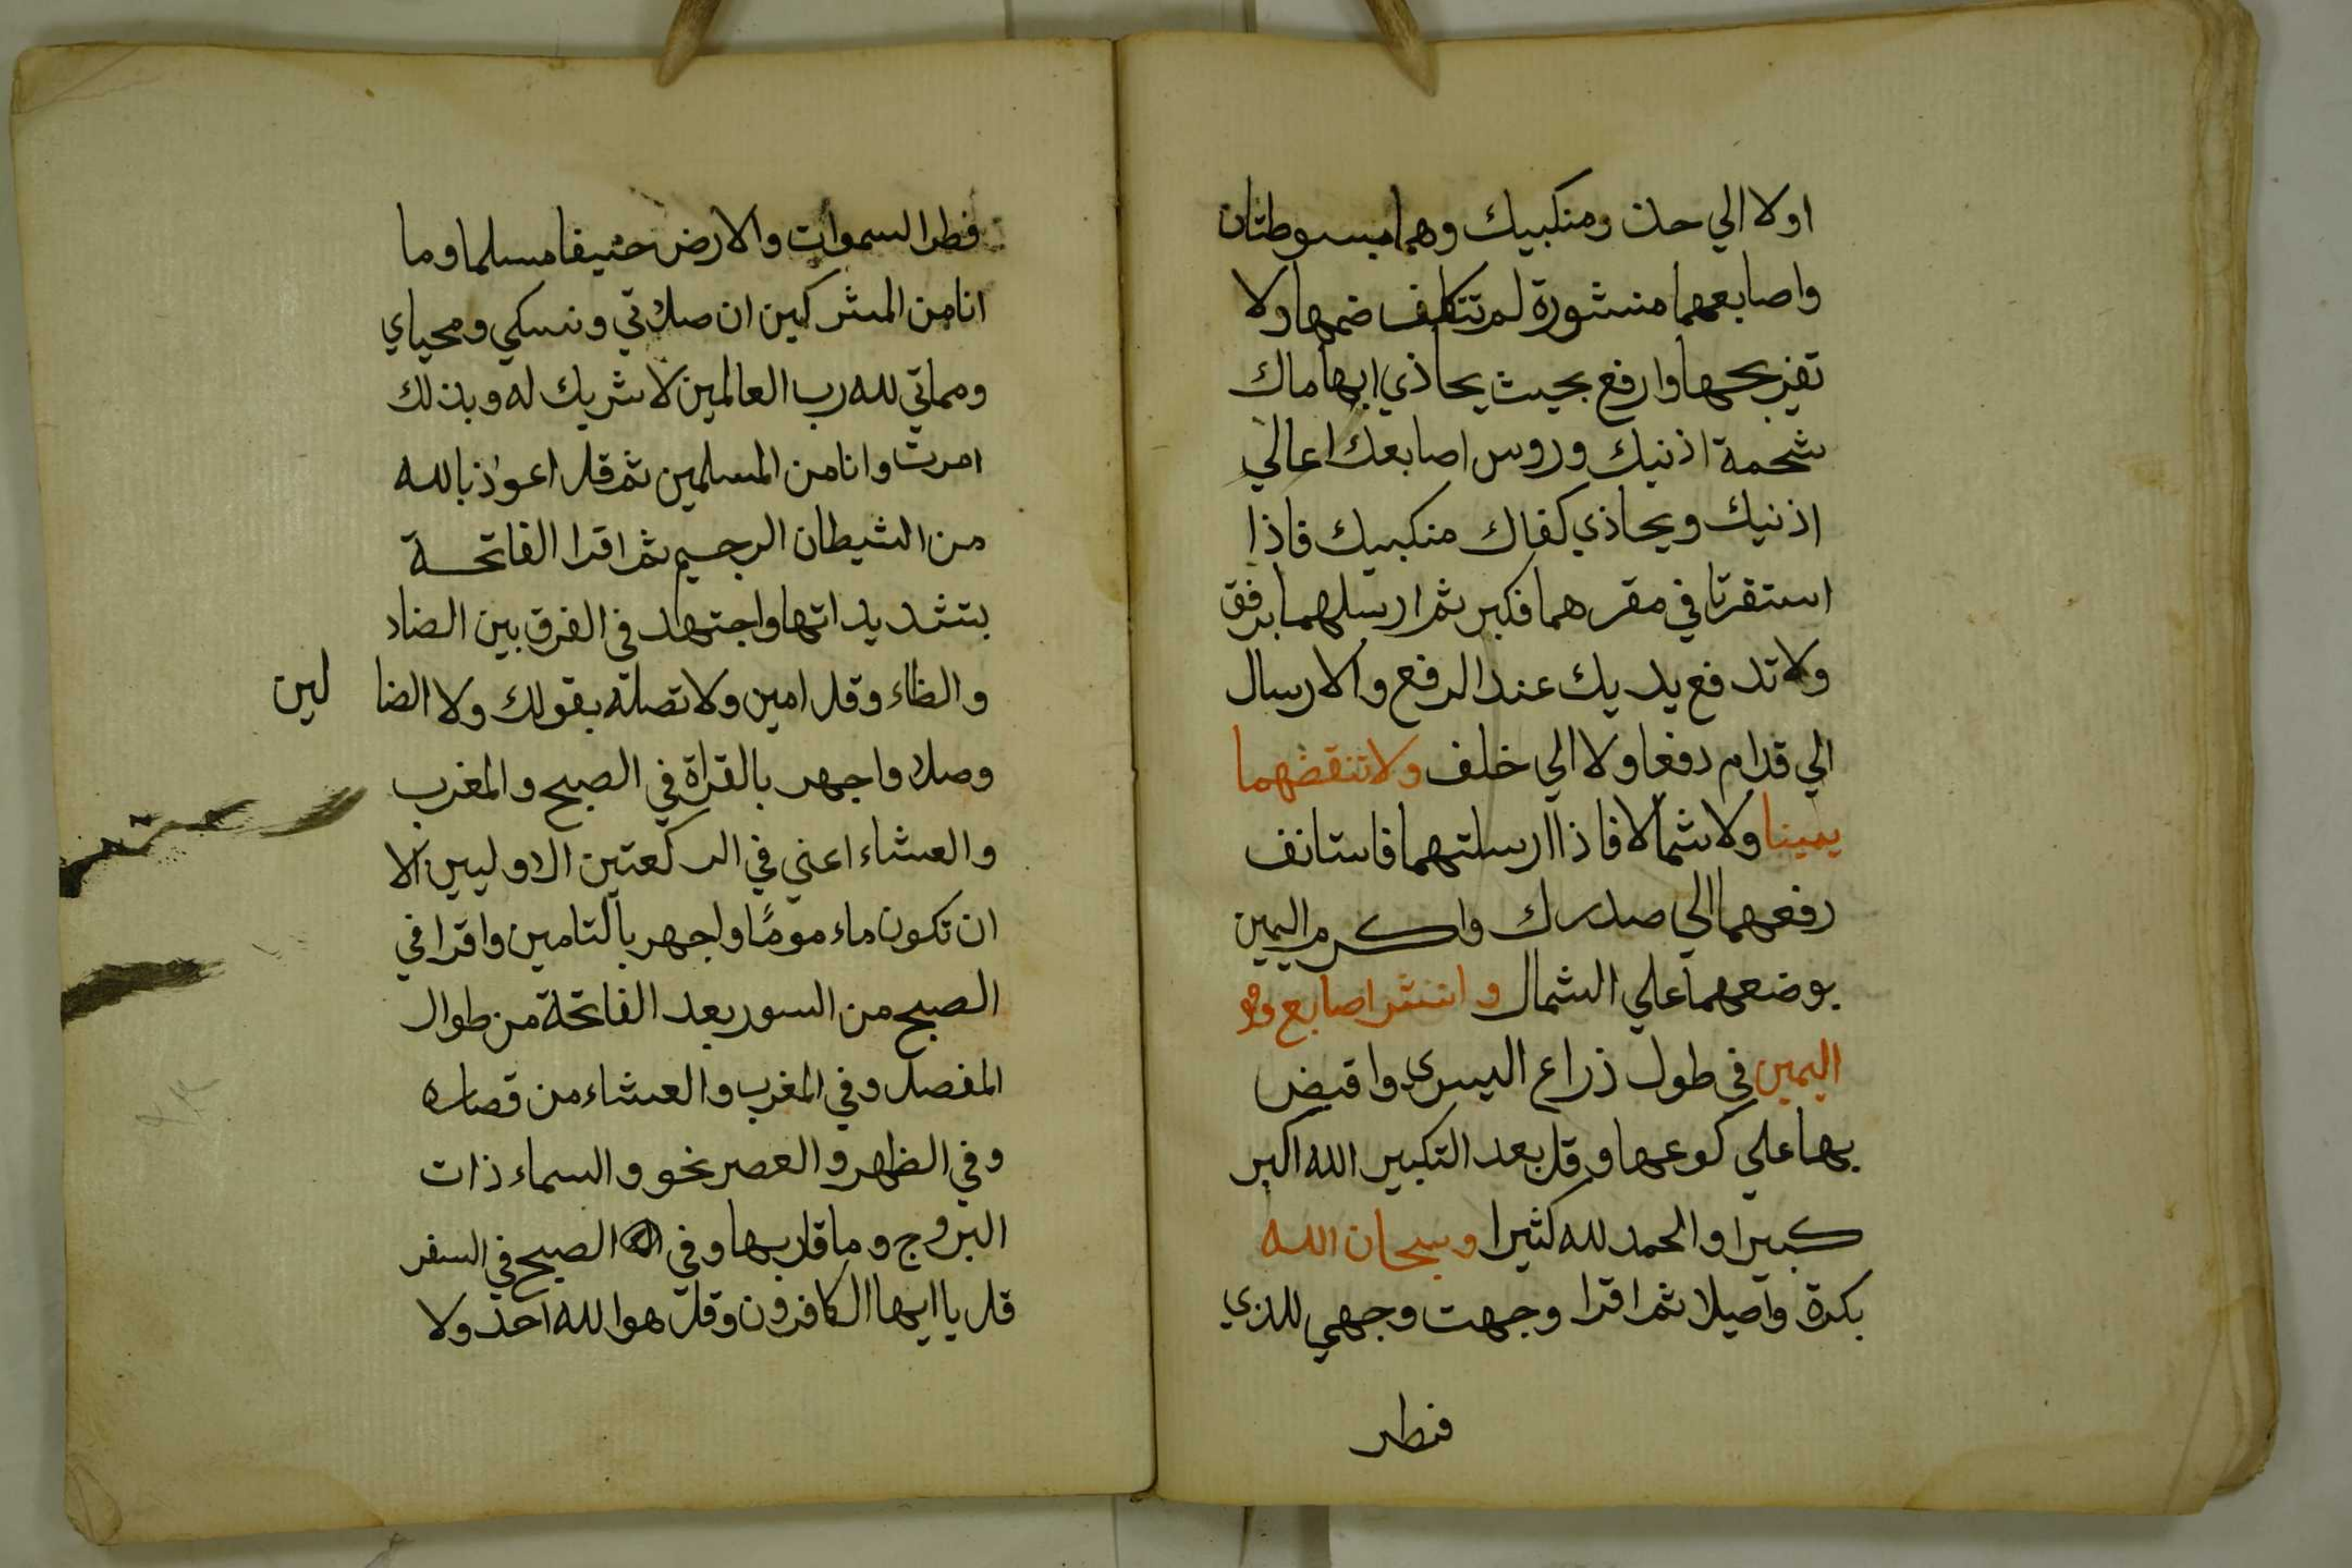 اولا الي حذ ومنكبيك وهما مبسوطتان
واصابعهما منشورة لم تتكلف ضمها ولا
تفريجها وارفع بحيث يحاذي ابهاماك
شحمة اذنيك وروس اصابعك اعالي
اذنيك ويحاذي كفاك منكبيك فاذا
استقرتا في مقرهما فكبر ثم ارسلهما برفق
ولا تدفع يديك عند الرفع والارسال
الي قدام دفعا ولا الي خلف ولا تنفضهما
يمينا ولا شمالا فاذا ارسلتهما فاستانف
رفعهما الي صدرك واكرم اليمين
بوضعهما علي الشمال وانشر اصابع
اليمين في طول ذراع اليسري واقبض
بها علي كوعها وقل بعد التكبير الله اكبر
كبيرا والحمد لله كثيرا وسبحان الله
بكرة واصيلا ثم اقرا وجهت وجهي للذي
فطر
فطر السموات والارض حنيفا مسلما وما
انا من المشركين ان صلاتي ونسكي ومحياي
ومماتي لله رب العالمين لا شريك له وبذلك
امرت وانا من المسلمين ثم قل اعوذ بالله
من الشيطان الرجيم ثم اقرا الفاتحة
بتشديداتها واجتهد في الفرق بين الضاد
والظاء وقل امين ولا تصله بقولك ولا الضا لين
وصلا واجهر بالقراة في الصبح والمغرب
والعشاء اعني في الركعتين الاوليين الا
ان تكون ماء موما واجهر بالتامين واقرا في
الصبح من السور بعد الفاتحة من طوال
المفصل وفي المغرب والعشاء من قصاره
وفي الظهر والعصر نحو والسماء ذات
البروج وما قاربها وفي الصبح في السفر
قل يا ايها الكافرون وقل هو الله احد ولا